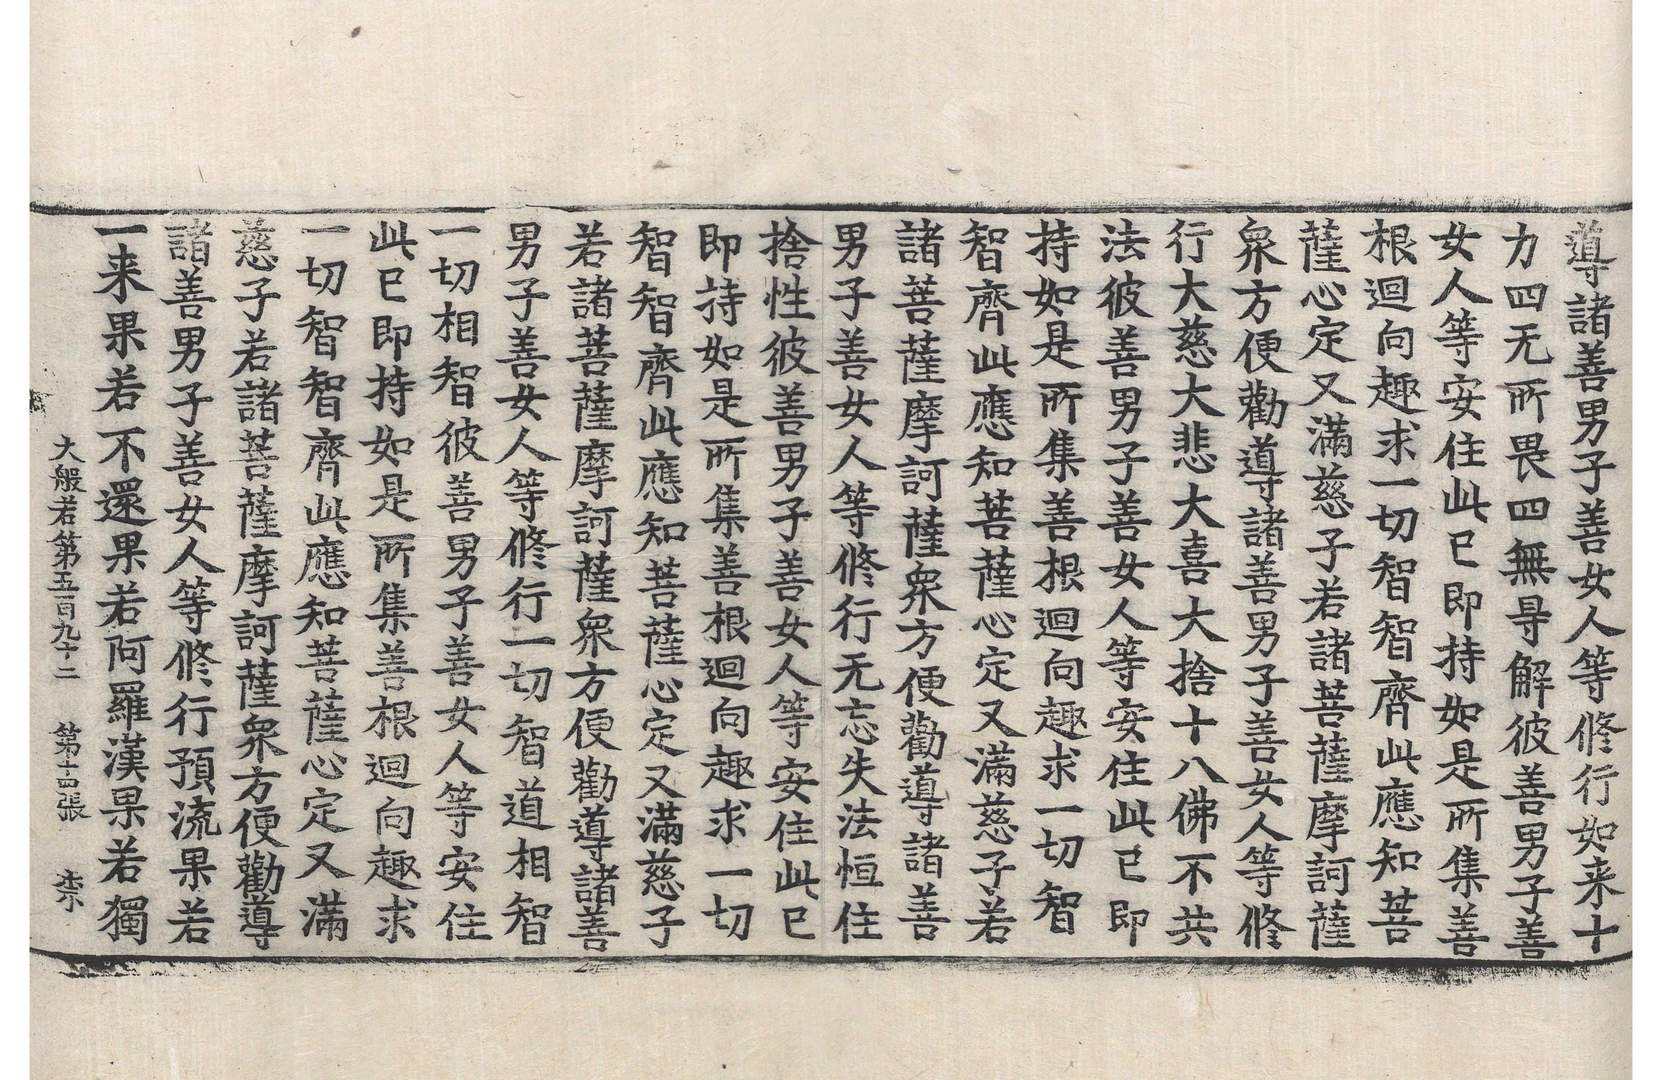 導諸善男子善女人等修行如来十
力四无所畏四無㝵解彼善男子善
女人等安住此已即持如是所集善
根迴向趣求一切智智齊此應知菩
薩心定又滿慈子若諸菩薩摩訶薩
衆方便勸導諸善男子善女人等修
行大慈大悲大喜大捨十八佛不共
法彼善男子善女人等安住此已即
持如是所集善根迴向趣求一切智
智齊此應知菩薩心定又滿慈子若
諸菩薩摩訶薩衆方便勸導諸善
男子善女人等修行无忘失法恒住
捨性彼善男子善女人等安住此已
即持如是所集善根迴向趣求一切
智智齊此應知菩薩心定又滿慈子
若諸菩薩摩訶薩衆方便勸導諸善
男子善女人等修行一切智道相智
一切相智彼善男子善女人等安住
此已即持如是所集善根迴向趣求
一切智智齊此應知菩薩心定又滿
慈子若諸菩薩摩訶薩衆方便勸導
諸善男子善女人等修行預流果若
一来果若不還果若阿羅漢果若獨
大般若第五百九十二 第十四張 柰